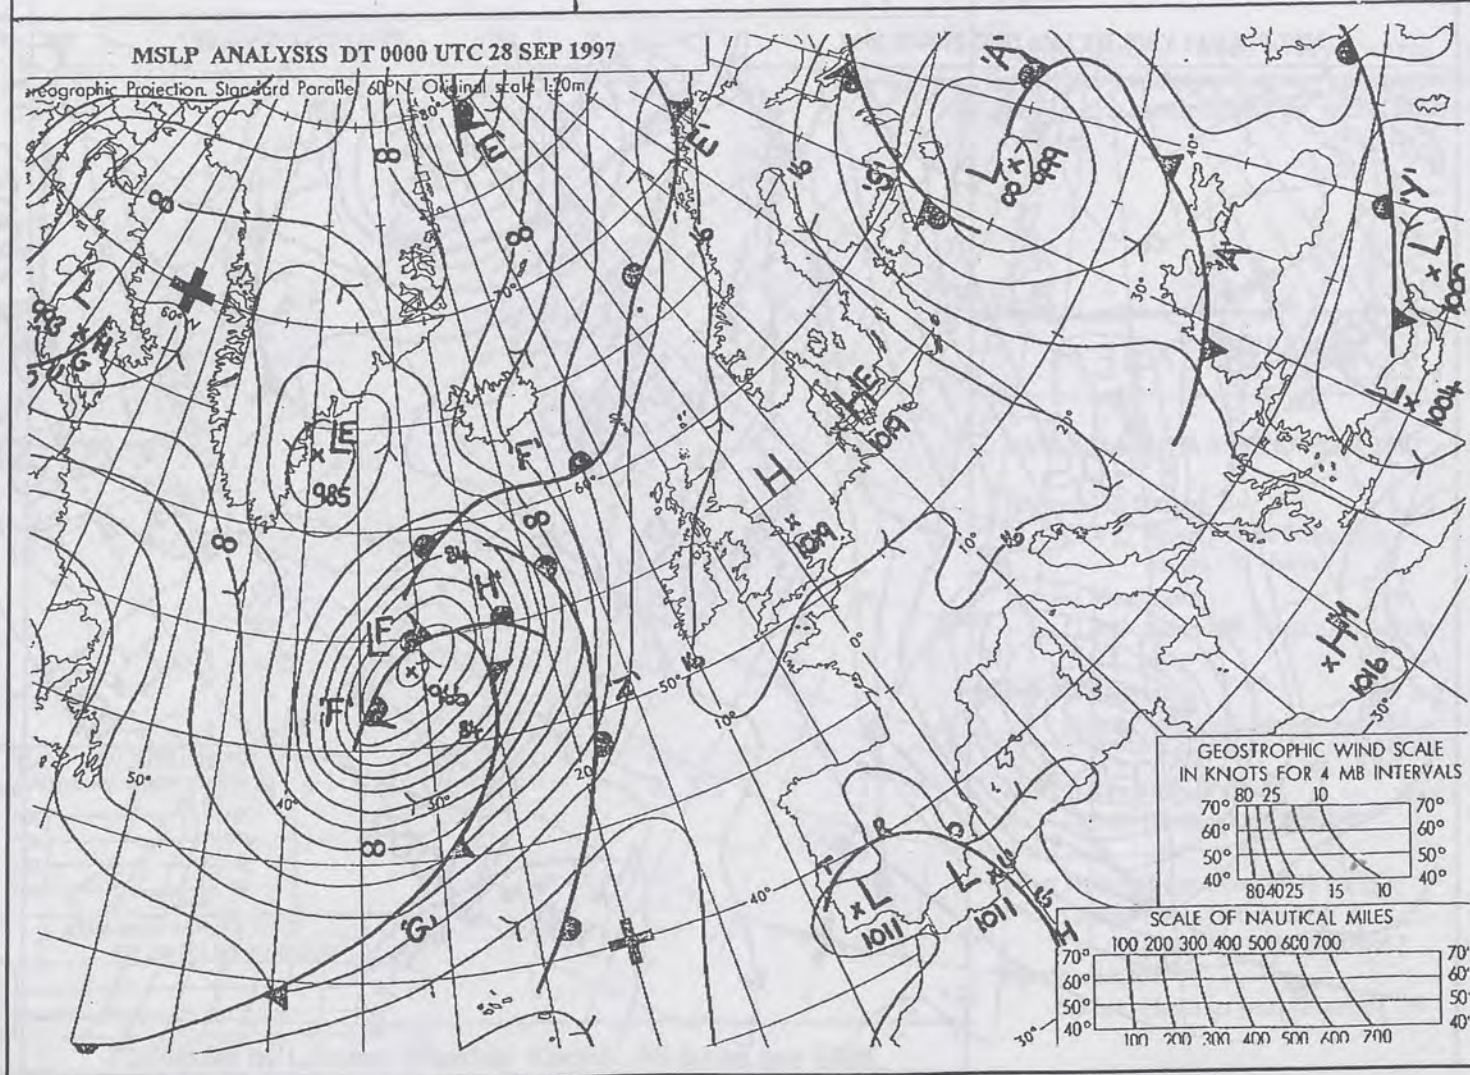 MSLP ANALYSIS DT 0000 UTC 28 SEP 1997
reographic Projection. Standard Parallel 60°N. Original scale 1:20m
80°
8
'E'
'E'
16
'A'
16
'S'
L
999
40°
'Y'
L
1000
8
8
L
993
60°N
'G'
70°
16
30°
'A'
L
1004
E
985
HE
1019
20°
'E'
60°
H
1019
10°
16
8
8
84
'H'
LF
965
'F'
84
16
50°
0°
10°
HM
1016
30°
50°
40°
30°
20
8
'G'
40°
L
1011
L
1011
16
30°
GEOSTROPHIC WIND SCALE
IN KNOTS FOR 4 MB INTERVALS
80 25 10
70° 70°
60° 60°
50° 50°
40° 40°
80 40 25 15 10
SCALE OF NAUTICAL MILES
100 200 300 400 500 600 700
70° 70°
60° 60°
50° 50°
40° 40°
100 200 300 400 500 600 700